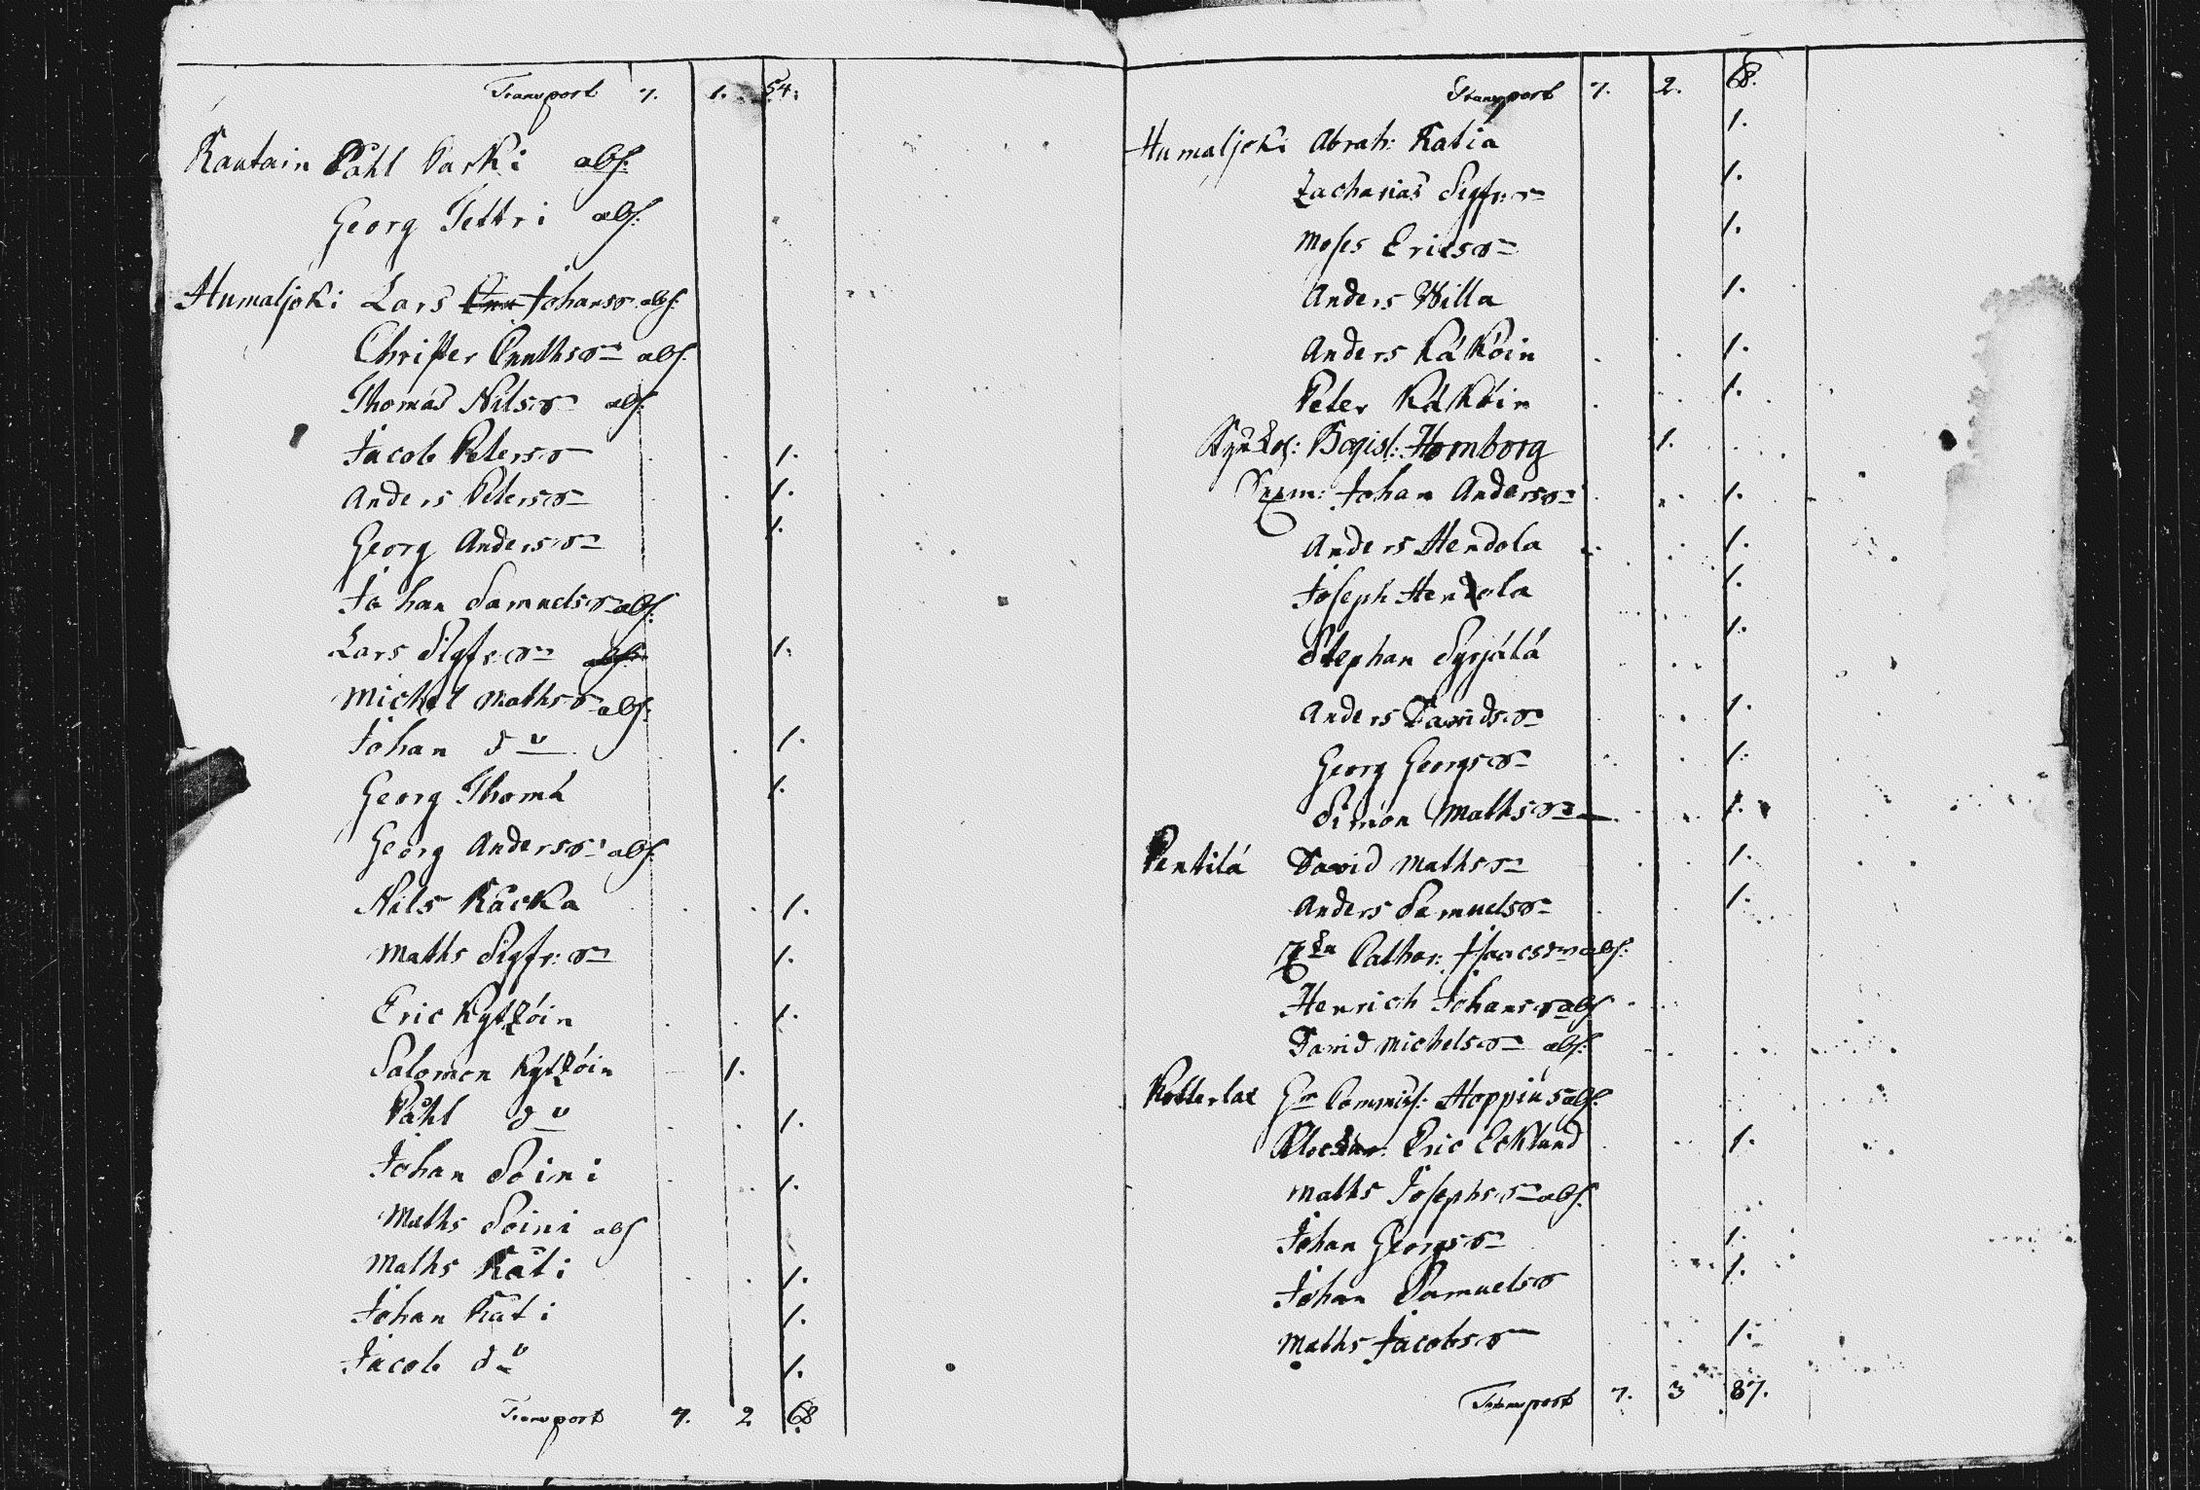 Transport 7. 1. 54.
Rautain Påhl Parki abs:
Georg Tettri abs:
Humaljoki Lars Johanso abs:
Christer Anuthson abs:
Thomas Nilsson abs:
Jacob Peterso 1.
Anders Peterson 1.
Georg Anderson 1.
Johan Samuelson abs:
Lars Sigfr:son abs: 1.
Michel Mathso abs:
Johan do 1.
Georg Thomä 1.
Georg Anderson abs:
Nils Räcka 1.
Maths Sigfr:son 1.
Eric Kytzöin 1.
Salomon Kytzöin 1.
Påhl do 1.
Johan Soini 1.
Maths Soini abs
Maths Räti 1.
Johan Räti 1.
Jacob do 1.
Transport 7. 2 68
Transport 7. 2. 68.
Humaljoki Abrah: Katia 1.
Zacharias Sigfr:son 1.
Moses Ericson 1.
Anders Willa 1.
Anders Käköin 1.
Peter Käköin 1.
Bogisl: Hornborg 1.
Johan Anderson 1.
Anders Hendola 1.
Joseph Hendola 1.
Stephan Syrjälä 1.
Anders Davidson 1.
Georg Georgson 1.
Simon Mathson 1.
Pentilä David Mathson 1.
Anders Samuelson 1.
Cathar: Isaacsdr abs:
Henrich Johanson abs
David Michelson abs:
Kotterlax Hr Commiss: Hoppius abs:
Klockar: Eric Ecklund 1.
Maths Josephson abs:
Johan Georgson 1.
Johan Samuelso 1.
Maths Jacobso 1.
Transport 7. 3 87.